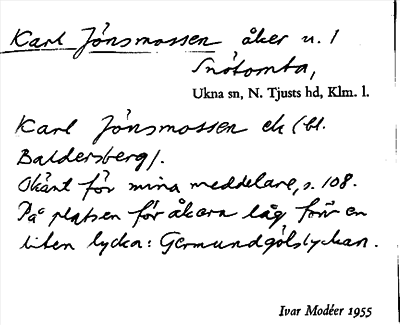 Karl Jönsmossen åker u. /
Snötomta,
Ukna sn, N. Tjusts hd, Klm. l.
Karl Jönsmossen ek (bl.
Baldersberg/.
Okänt för mina meddelare, s. 108.
På platsen för åkern låg förr en
liten lycka: Germundgölslyckan.
Ivar Modéer 1955